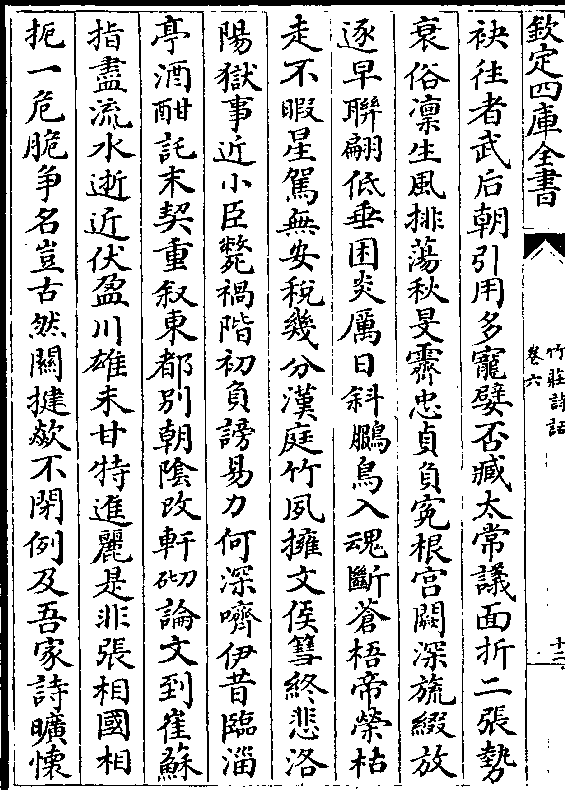 欽定四庫全書
竹莊詩話
卷六
十二
袂往者武后朝引用多寵嬖否臧太常議面折二張勢
衰俗凜生風排蕩秋旻霽忠貞負寃根宫闕深旒綴放
逐早聯翩低垂困炎厲日斜鵩鳥入魂斷蒼梧帝榮枯
走不暇星駕無安稅幾分漢庭竹夙擁文侯篲終悲洛
陽獄事近小臣斃禍階初負謗易力何深嚌伊昔臨淄
亭酒酣託末契重叙東都别朝陰改軒砌論文到崔蘇
指盡流水逝近伏盈川雄未甘特進麗是非張相國相
扼一危脆争名豈古然關揵欻不閉例及吾家詩曠懷